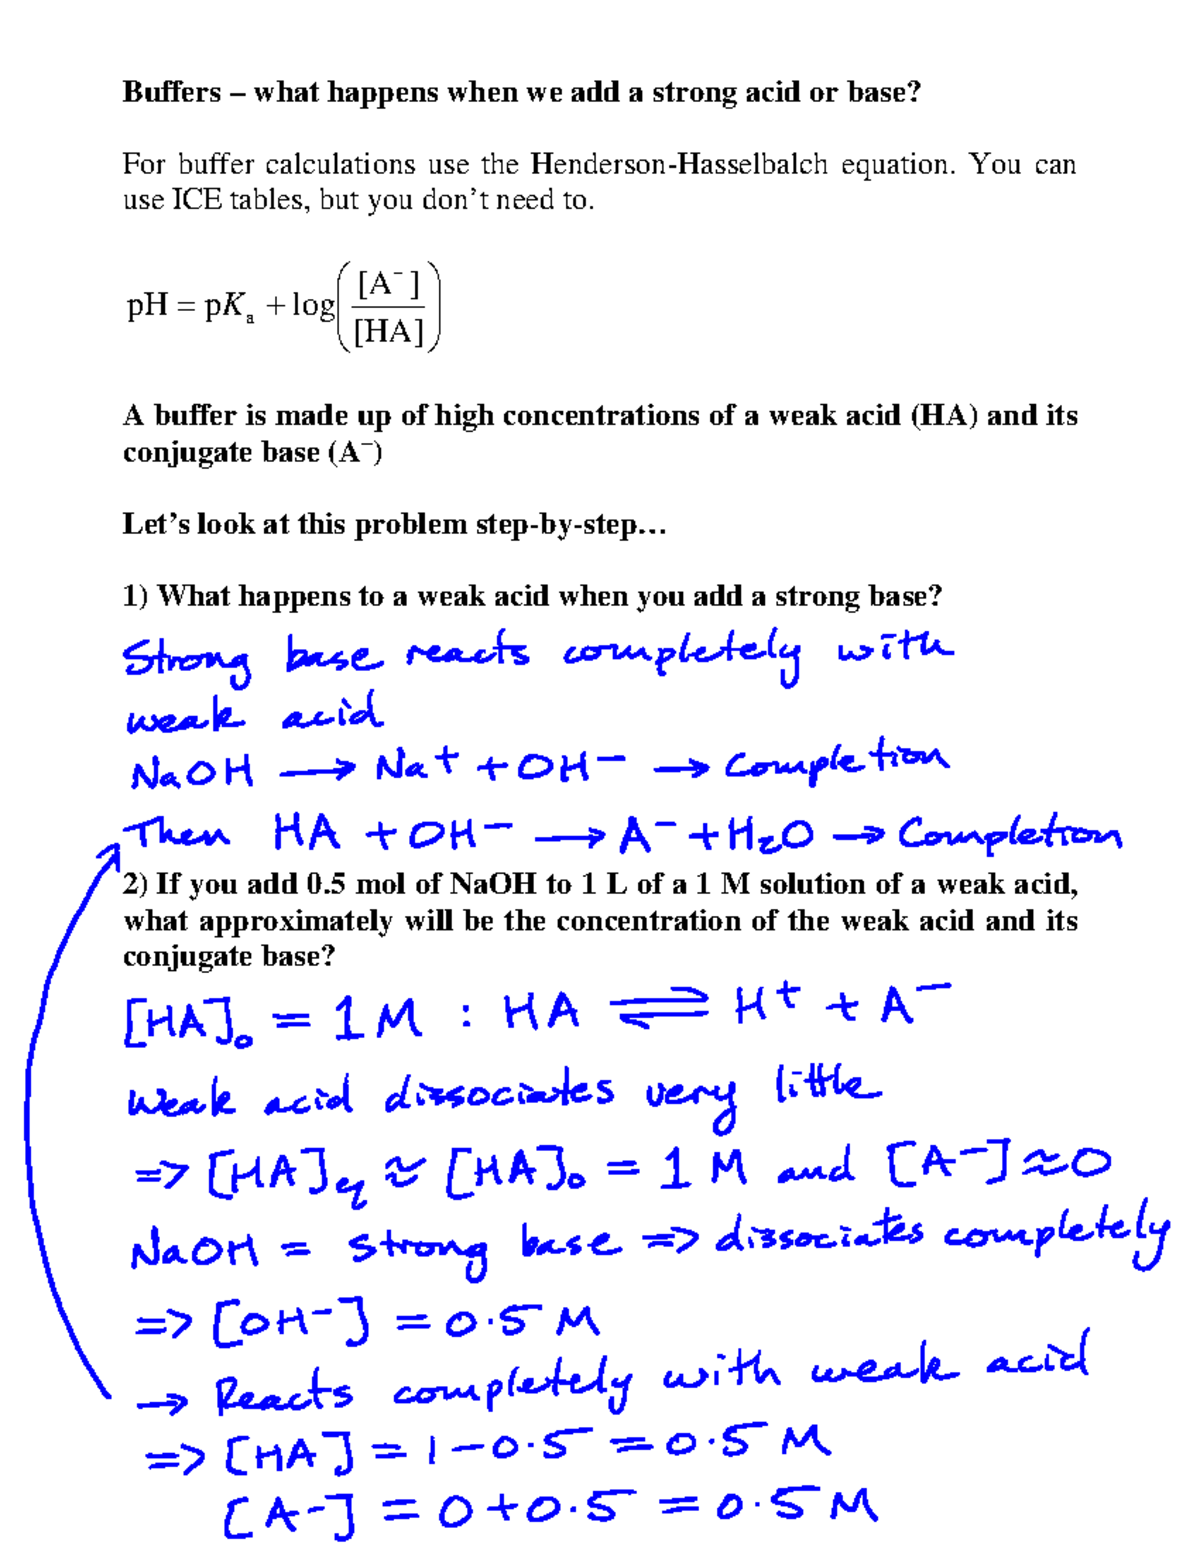 Buffers – what happens when we add a strong acid or base?
For buffer calculations use the Henderson-Hasselbalch equation. You can
use ICE tables, but you don't need to.
pH = pKₐ + log([A⁻]/[HA])
A buffer is made up of high concentrations of a weak acid (HA) and its
conjugate base (A⁻)
Let's look at this problem step-by-step…
1) What happens to a weak acid when you add a strong base?
Strong base reacts completely with
weak acid
NaOH → Na⁺ + OH⁻ → Completion
Then HA + OH⁻ → A⁻ + H₂O → Completion
2) If you add 0.5 mol of NaOH to 1 L of a 1 M solution of a weak acid,
what approximately will be the concentration of the weak acid and its
conjugate base?
[HA]₀ = 1 M : HA ⇌ H⁺ + A⁻
Weak acid dissociates very little
=> [HA]eq ≈ [HA]₀ = 1 M and [A⁻] ≈ 0
NaOH = strong base => dissociates completely
=> [OH⁻] = 0.5 M
→ Reacts completely with weak acid
=> [HA] = 1 - 0.5 = 0.5 M
[A⁻] = 0 + 0.5 = 0.5 M